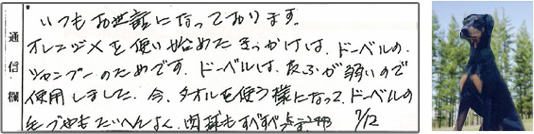 通信欄
いつもお世話になっております。
オレンジXを使い始めたきっかけは、ドーベルの、
シャンプーのためです。ドーベルは、皮ふが弱いので
使用しました。今、タオルを使う様になって、ドーベルの
毛づやもたいへんよく、肉球もすべすべ
7/12